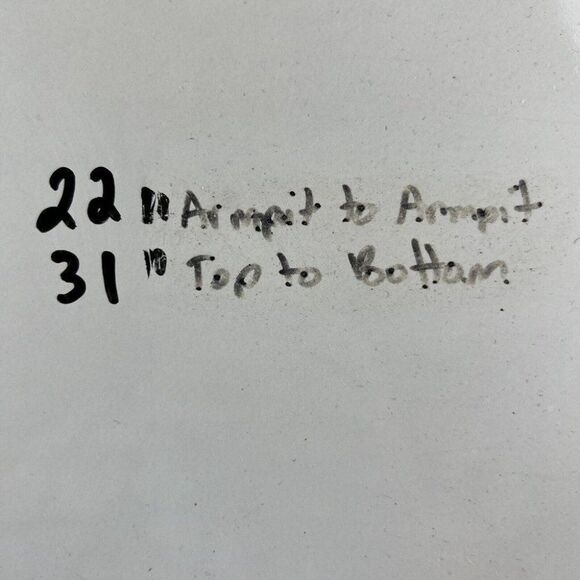 22" Armpit to Armpit
31" Top to Bottom